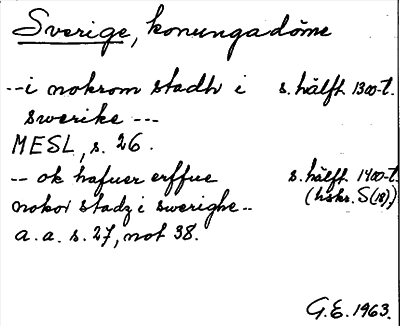 Sverige, konungadöme
--i nokrom stadh i s. hälft. 1300-t.
swerike ---
MESL, s. 26.
-- ok hafuer erffue s. hälft. 1400-t.
nokor stadz i swerighe-- (hskr. S(18),)
a.a. s. 27, not 38.
G.E. 1963.